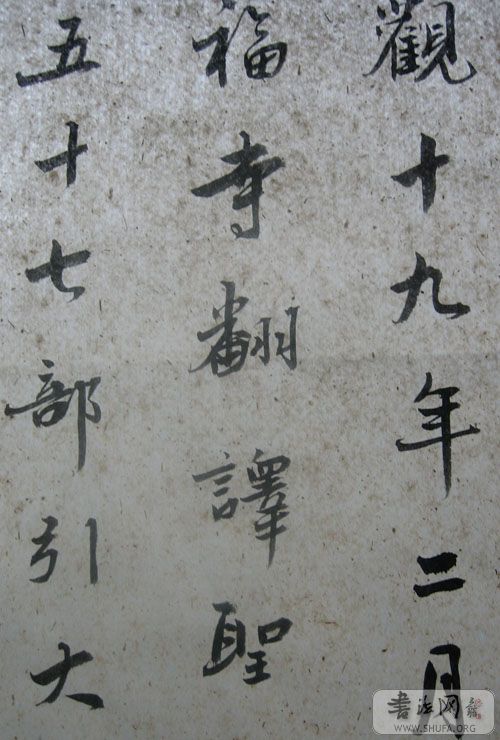 觀十九年二月
福寺翻譯聖
五十七部引大
書法网
WWW.SHUFA.ORG